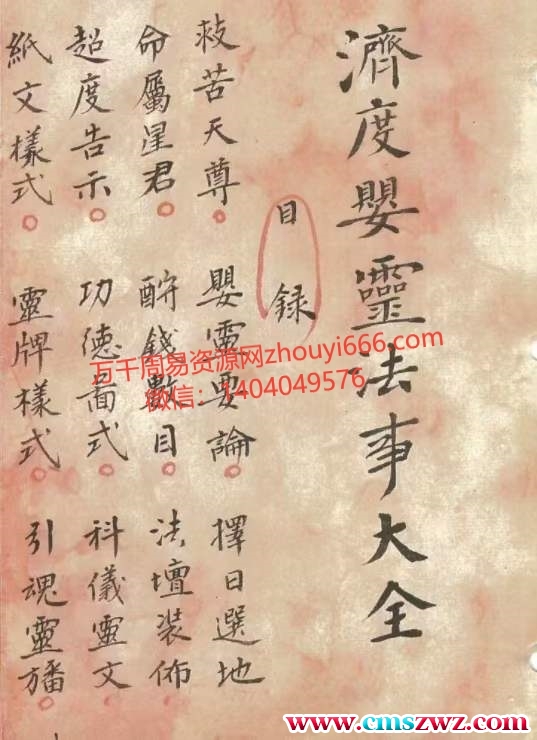 濟度嬰靈法事大全
目録
救苦天尊 嬰靈要論 擇日選地
命屬星君 酧錢數目 法壇裝佈
超度告示 功德面式 科儀靈文
紙文樣式 靈牌樣式 引魂靈旛
万千周易资源网zhouyi666.com
微信：1404049576
www.cmszwz.com